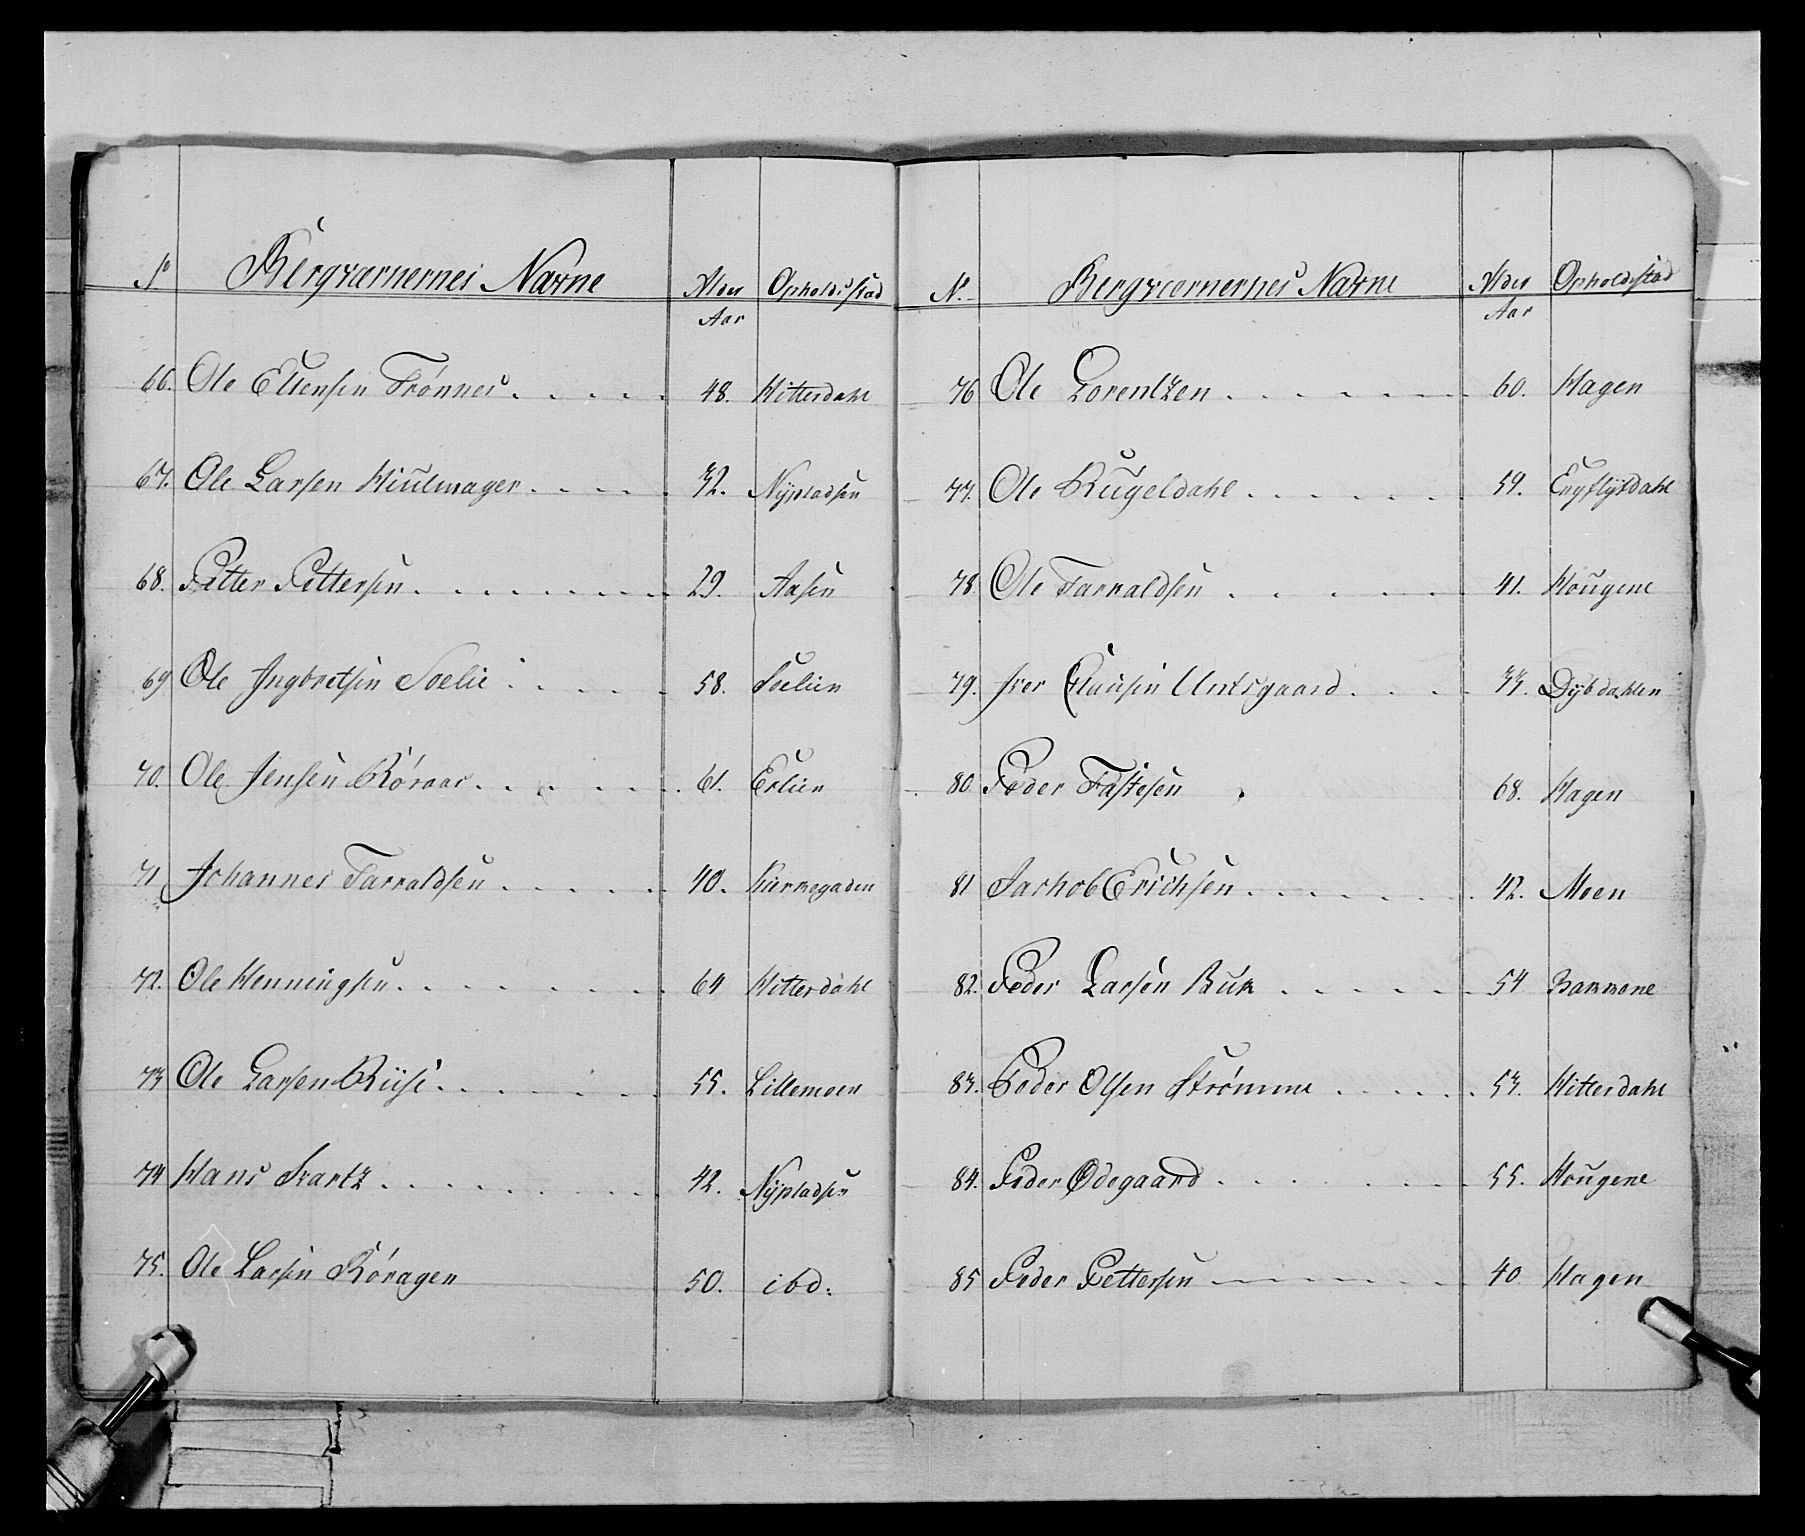 No Bergværnernes Navne Alder Opholdsstad
Aar
66. Ole Ellensen Trønnes 48. Hitterdahl
67. Ole Larsen Hiulmager 32. Nÿpladsen
68. Petter Pettersen 29. Aasen
69 Ole Ingbretsen Soelie 58. Soelien
70. Ole Jensen Röraas 61. Erlien
71 Johannes Tarraldsen 40. Kurvegaden
72. Ole Henningsen 64 Hitterdahl
73 Ole Larsen Riise 55. Lillemoen
74 Hans Svartz 42. Nÿpladsen
75. Ole Larsen Röragen 50. ibd:
No. Bergværnernes Navne Alder Opholdsstad
Aar
76 Ole Lorentzen 60. Hagen
77. Ole Kugeldahl 59. Hagen
78. Ole Tarraldsen 41. Hougene
79. Iver Clausen Untsgaard 33. Dÿbdahlen
80 Peder Fastesen 68. Hagen
81 Jachob Erichsen 42. Moen
82. Peder Larsen Buk 54
83. Peder Olsen Strømme 53. Hitterdahl
84. Peder Ødegaard 55. Hougene
85 Peder Pettersen 40 Hagen